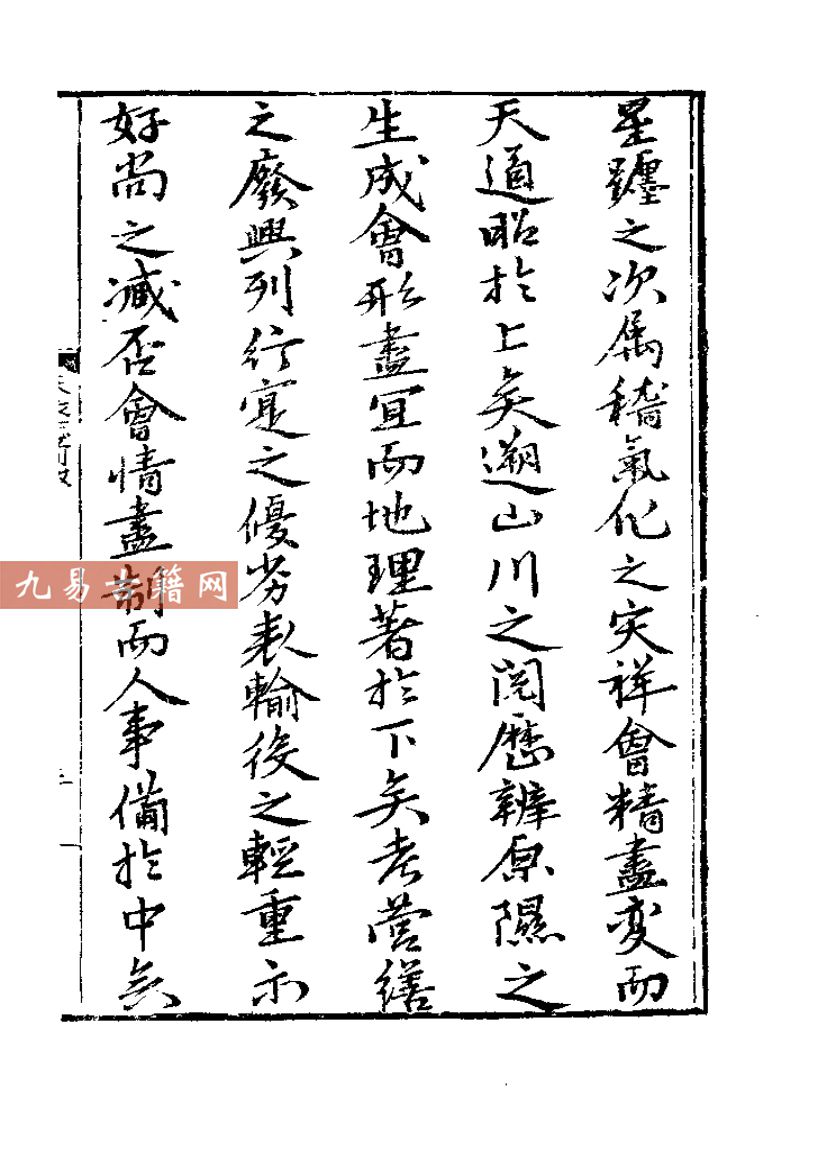 星躔之次属稽氣化之灾祥會精盡変而
天道昭於上矣遡山川之閲歷辨原隰之
生成會形盡宜而地理著於下矣考營繕
之廢興列行寔之優劣表輸役之輕重示
好尚之臧否會情盡制而人事備於中矣
九易古籍网